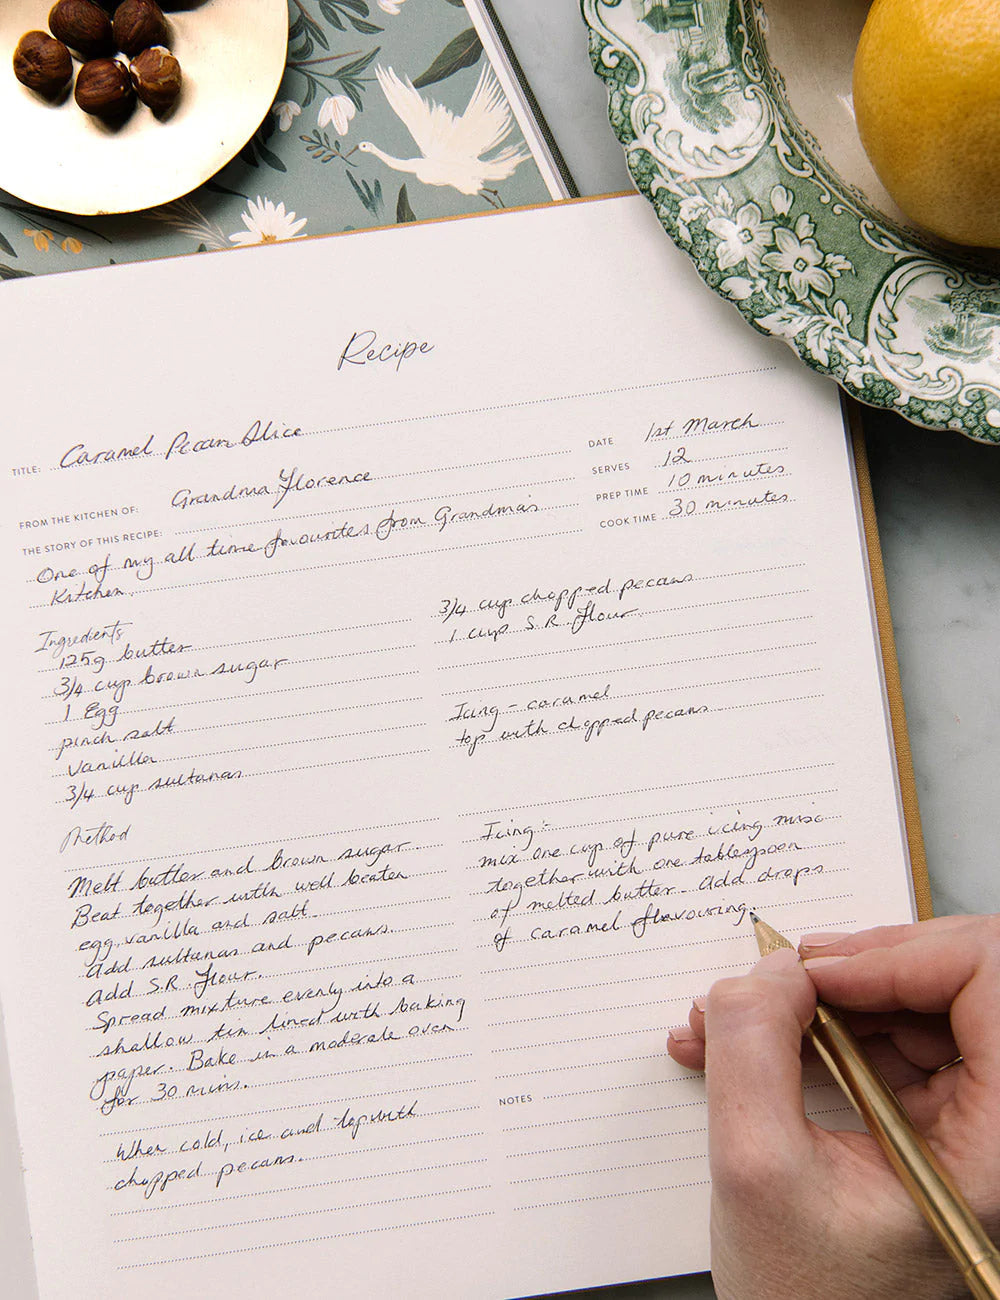 Recipe
TITLE: Caramel Pecan Slice
FROM THE KITCHEN OF: Grandma Florence
THE STORY OF THIS RECIPE:
One of my all time favourites from Grandma's
Kitchen.
DATE 1st March
SERVES 12
PREP TIME 10 minutes
COOK TIME 30 minutes
Ingredients
125g butter
3/4 cup brown sugar
1 Egg
pinch salt
Vanilla
3/4 cup sultanas
3/4 cup chopped pecans
1 cup S.R. Flour
Icing - caramel
top with chopped pecans
Method
Melt butter and brown sugar
Beat together with well beaten
egg, vanilla and salt.
Add sultanas and pecans.
Add S.R. Flour.
Spread mixture evenly into a
shallow tin lined with baking
paper. Bake in a moderate oven
for 30 mins.
When cold, ice and top with
chopped pecans.
Icing:-
mix one cup of pure icing mix
together with one tablespoon
of melted butter. Add drops
of caramel flavouring.
NOTES